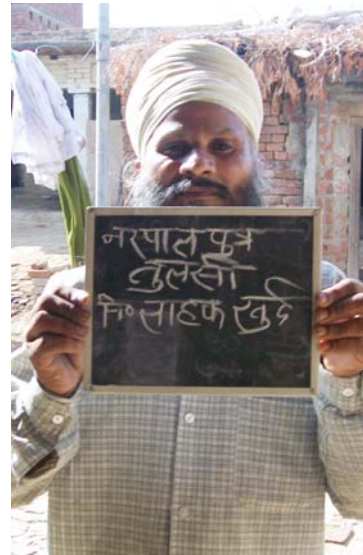 नरपाल पुत्र
तुलसी
नि० साहक खुर्द